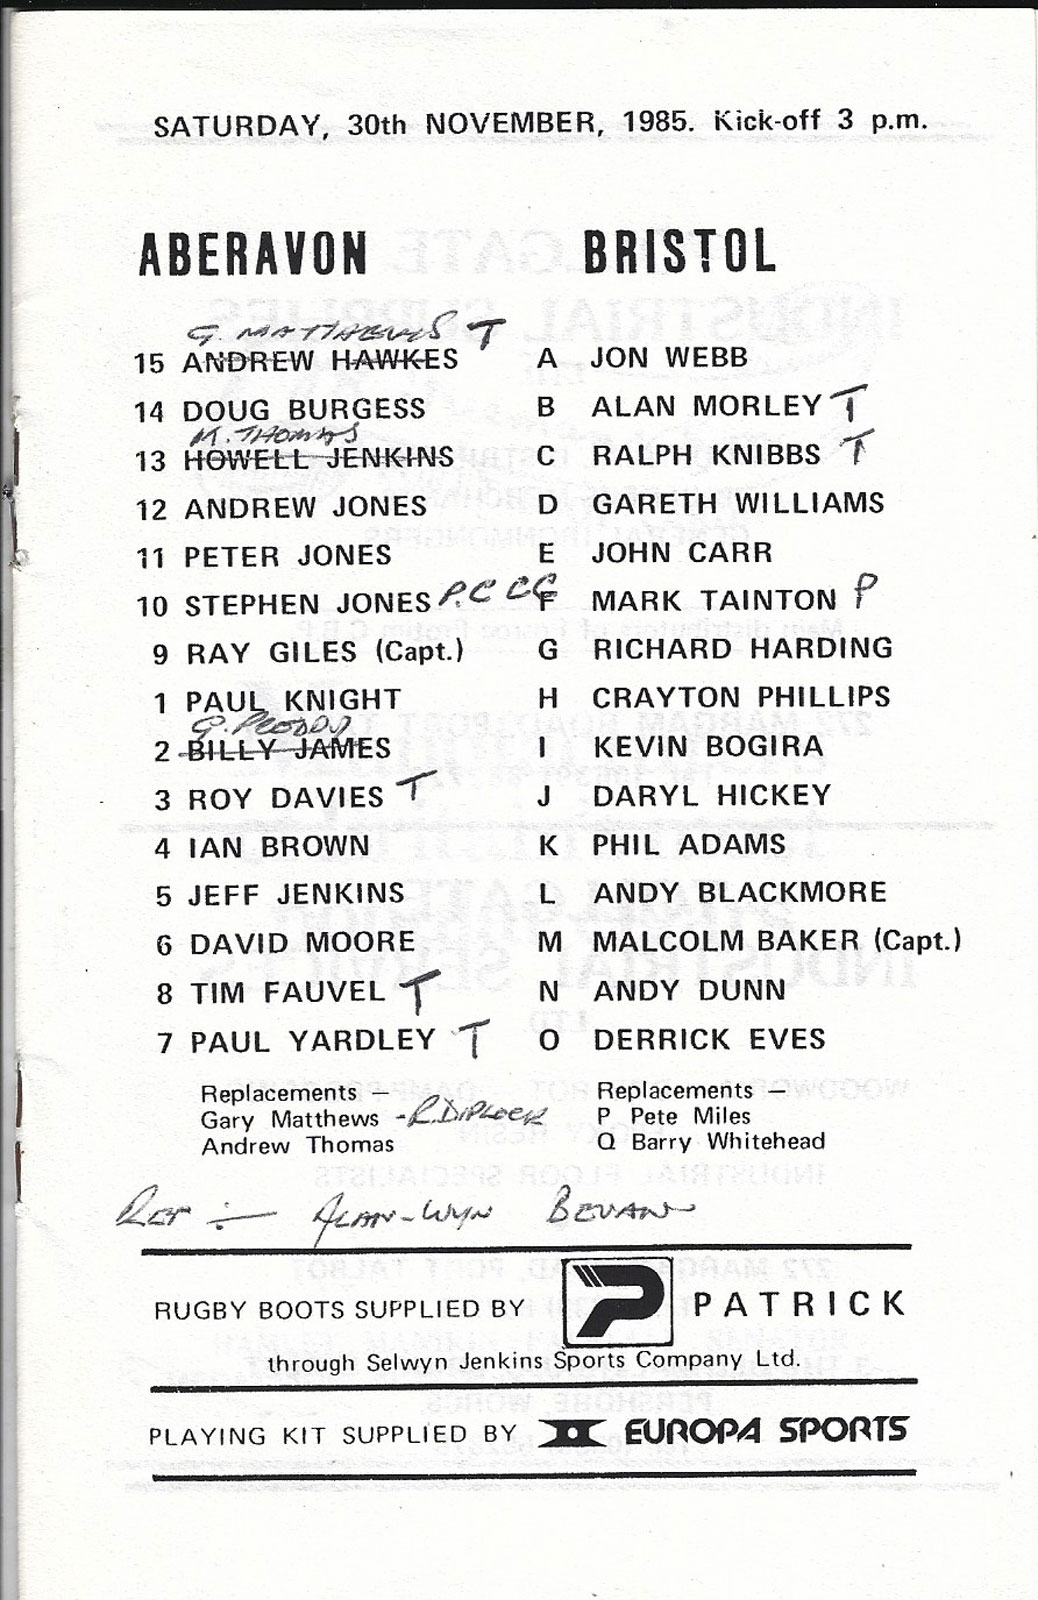 SATURDAY, 30th NOVEMBER, 1985. Kick-off 3 p.m.
ABERAVON BRISTOL
G. MATTHEWS T
15 ANDREW HAWKES A JON WEBB
14 DOUG BURGESS B ALAN MORLEY T
K. THOMAS
13 HOWELL JENKINS C RALPH KNIBBS T
12 ANDREW JONES D GARETH WILLIAMS
11 PETER JONES E JOHN CARR
10 STEPHEN JONES P.C CC F MARK TAINTON P
9 RAY GILES (Capt.) G RICHARD HARDING
1 PAUL KNIGHT H CRAYTON PHILLIPS
G.
2 BILLY JAMES I KEVIN BOGIRA
3 ROY DAVIES T J DARYL HICKEY
4 IAN BROWN K PHIL ADAMS
5 JEFF JENKINS L ANDY BLACKMORE
6 DAVID MOORE M MALCOLM BAKER (Capt.)
8 TIM FAUVEL T N ANDY DUNN
7 PAUL YARDLEY T O DERRICK EVES
Replacements — Replacements —
Gary Matthews - R. DIPLOCK P Pete Miles
Andrew Thomas Q Barry Whitehead
REF :— ALAN-WYN BEVAN
RUGBY BOOTS SUPPLIED BY P PATRICK
through Selwyn Jenkins Sports Company Ltd.
PLAYING KIT SUPPLIED BY EUROPA SPORTS